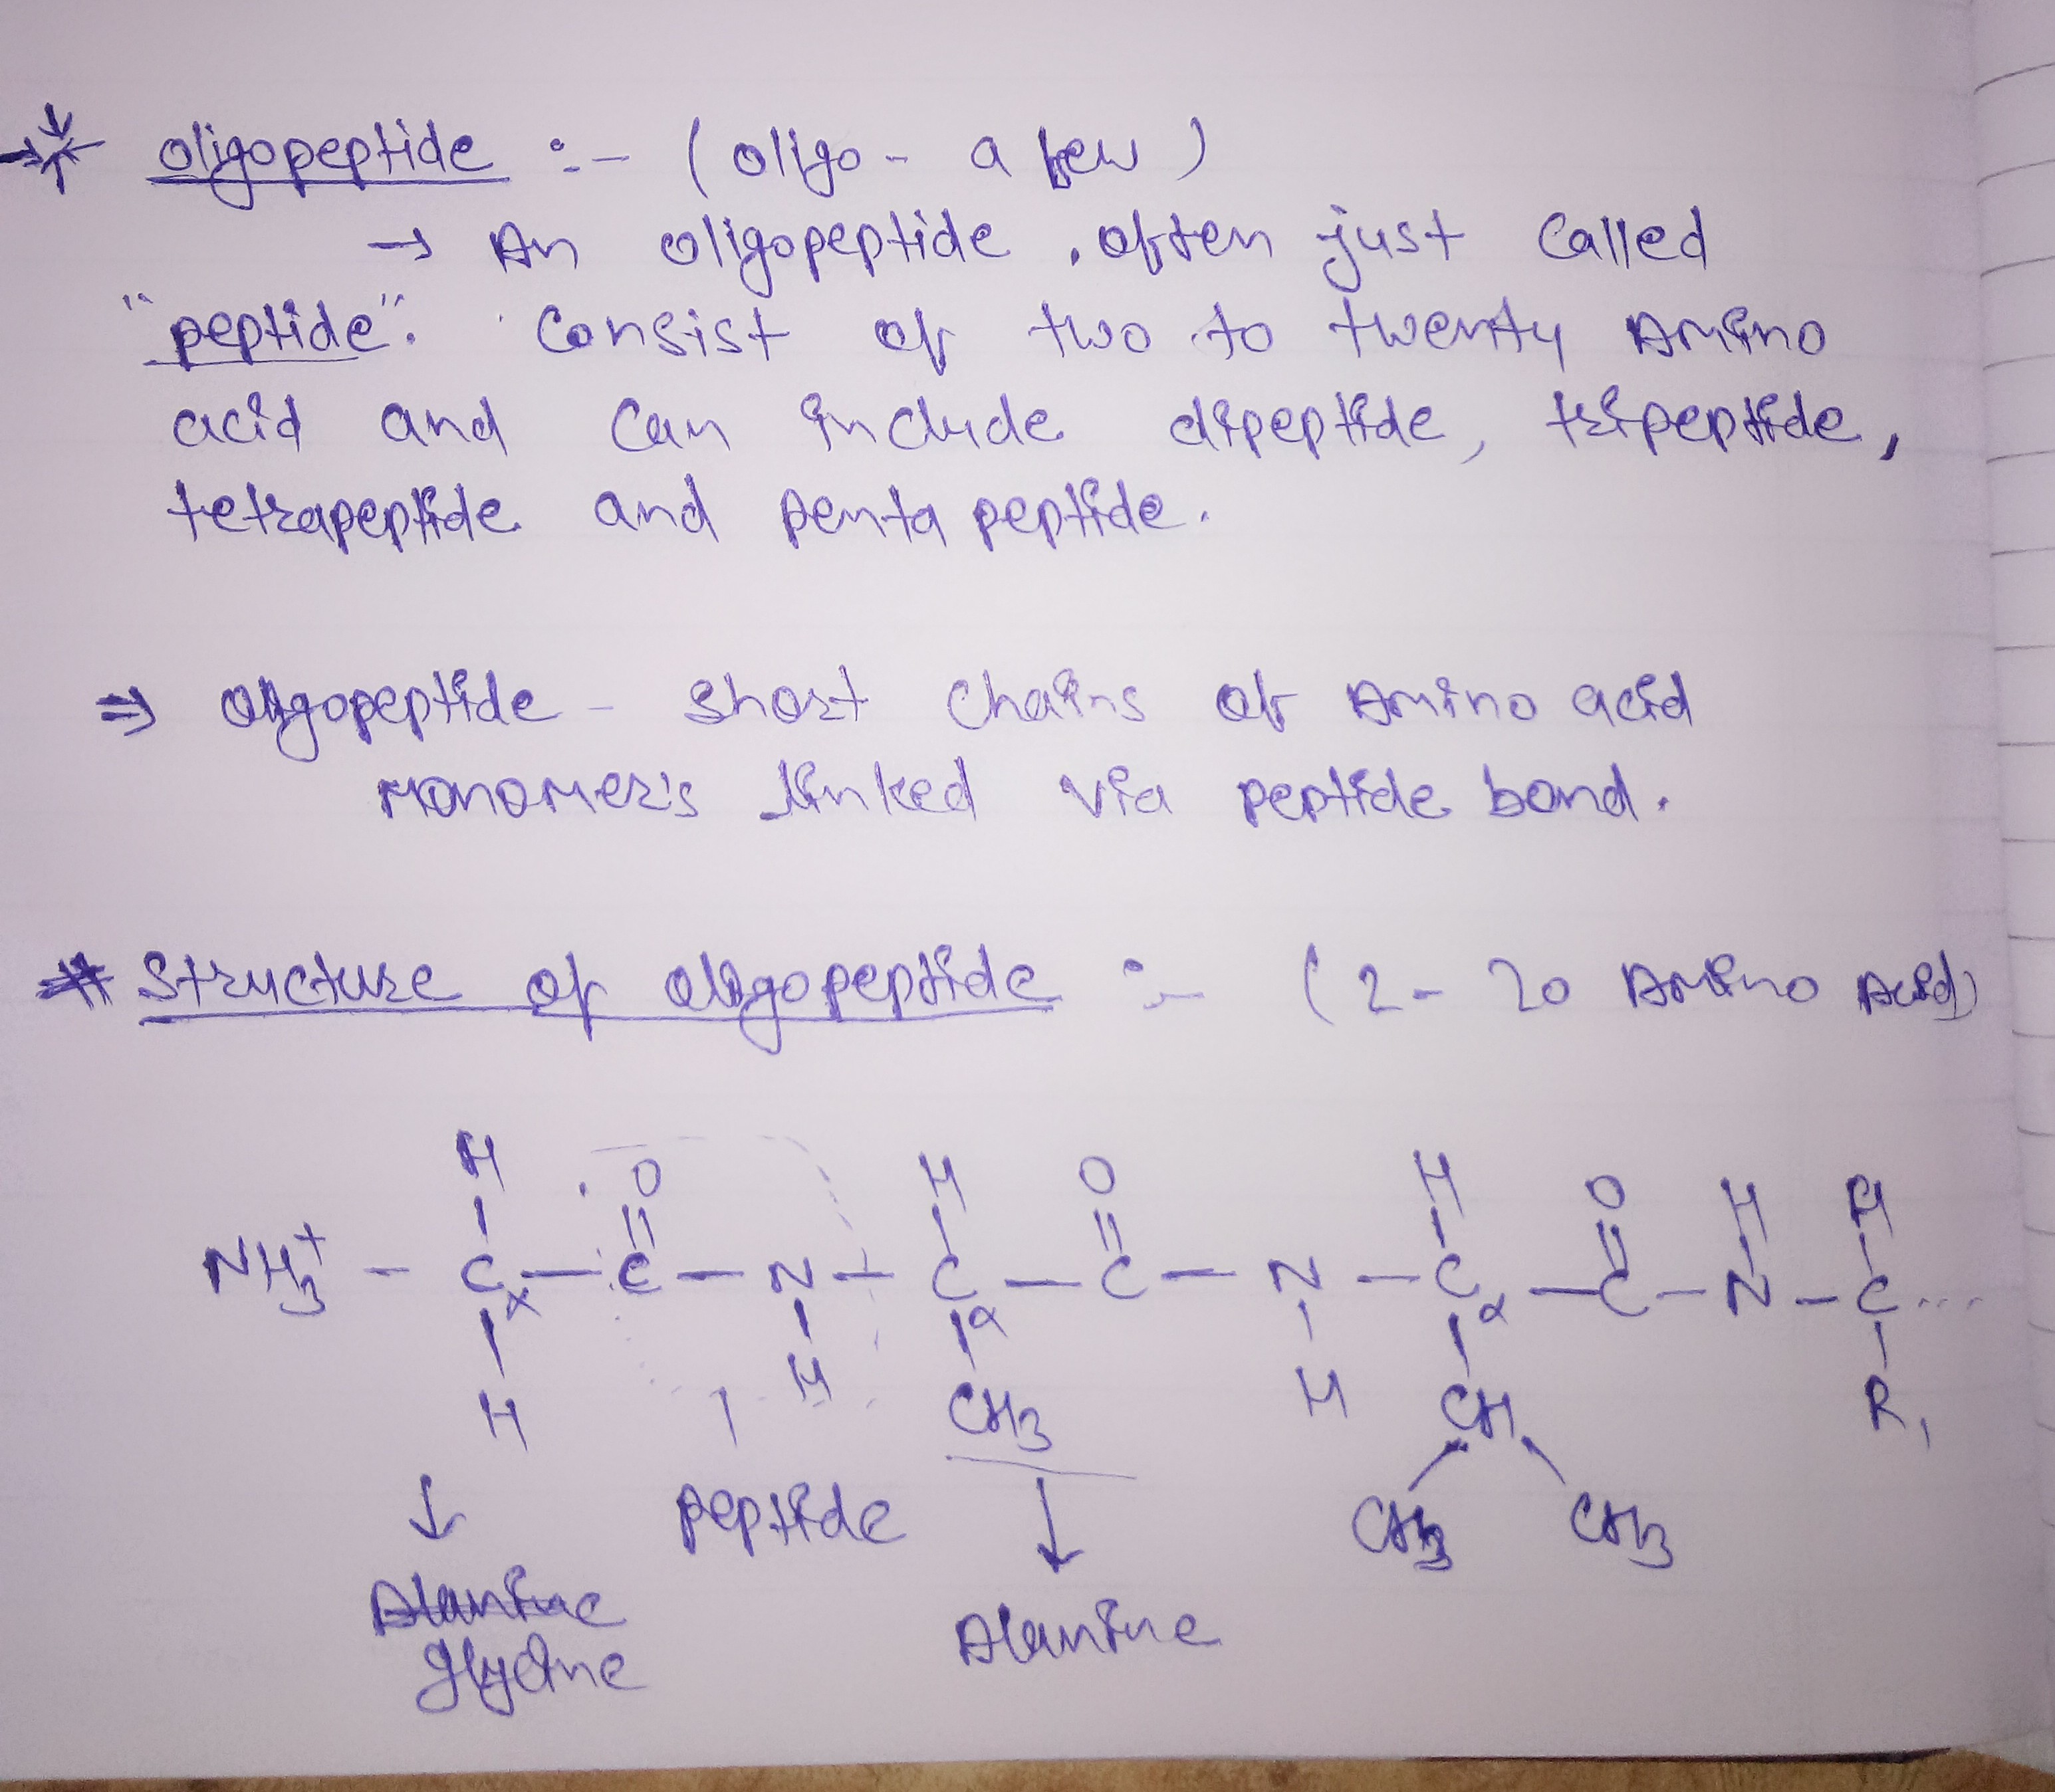 * oligopeptide :- (oligo - a few)
→ An oligopeptide, often just called
"peptide". Consist of two to twenty Amino
acid and can include dipeptide, tripeptide,
tetrapeptide and penta peptide.
⇒ oligopeptide - short chains of Amino acid
monomer's linked via peptide bond.
# Structure of oligopeptide :- (2-20 Amino Acid)
H O H O H O H H
NH3+ - Cα - C - N - Cα - C - N - Cα - C - N - C ...
H H CH3 H CH R1
CH3 CH3
peptide
Alanine
glycine Alanine